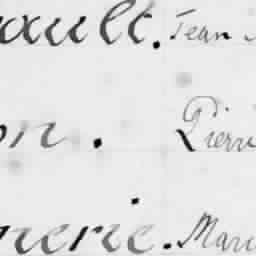 ault. Jean
on. Pierre
nerie. Marie